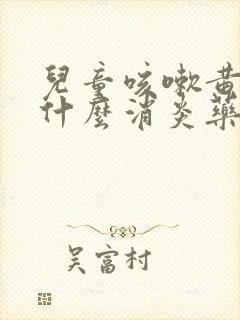 兒童咳嗽黃
什麼消炎藥
吴富村